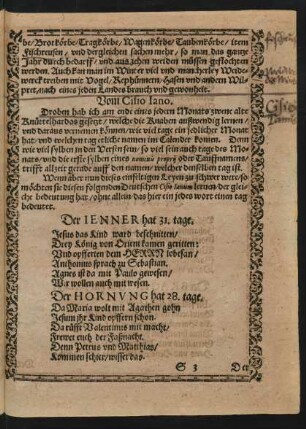 be/Brotkörbe/Tragkörbe/Wagenkörbe/Taubenkörbe/item
Fischreusen/vnd dergleichen sachen mehr/so man das gantze
Jahr durch bedarff/vnd aus zehen weiden müssen geflochten
werden. Auch kan man im Winter viel vnd mancherley Weide-
werck treiben mit Vogel/Rephünern/Hasen vnd andern Wil-
pret/nach eines jeden Landes brauch vnd gewonheit.
Vom Cisio Iano.
Droben hab ich am ende eines jeden Monats zwene alte
Knüttelhardos gesetzt/welche die Knaben auswendig lernen/
vnd daraus vernemen können/wie viel tage ein jedlicher Monat
hat/vnd welchen tag etliche namen im Calender komen. Denn
wie viel sylben in den Versen sein/so viel sein auch tage des Mo-
nats/vnd die erste sylben eines nominis proprij oder Tauffnamens/
trifft allzeit gerade auff den namen/welcher denselben tag ist.
Wem aber nun dieses einfeltigen Leyen zu schwer were/so
möchten sie diesen folgenden Deutschen Cisio Ianum lernen der gleiche
bedeutung hat/ohne allein das hier ein jedes wort einen tag
bedeutet.
Der IENNER hat 31. tage.
Jesus das Kind ward beschnitten/
Drey König von Orient kamen geritten:
Vnd opfferten dem HERRN lobesan/
Anthonius sprach zu Sebastian.
Agnes ist da mit Paulo gewesen/
Wir wollen auch mit wesen.
Der HORNVNG hat 28. tage.
Da Maria wolt mit Agathen gehn
Jesum ihr Kind opffern schon.
Da rüfft Valentinus mit macht/
Frewet euch der Faßnacht.
Denn Petrus vnd Matthias/
Kommen schier/wisset das.
S 3 Der